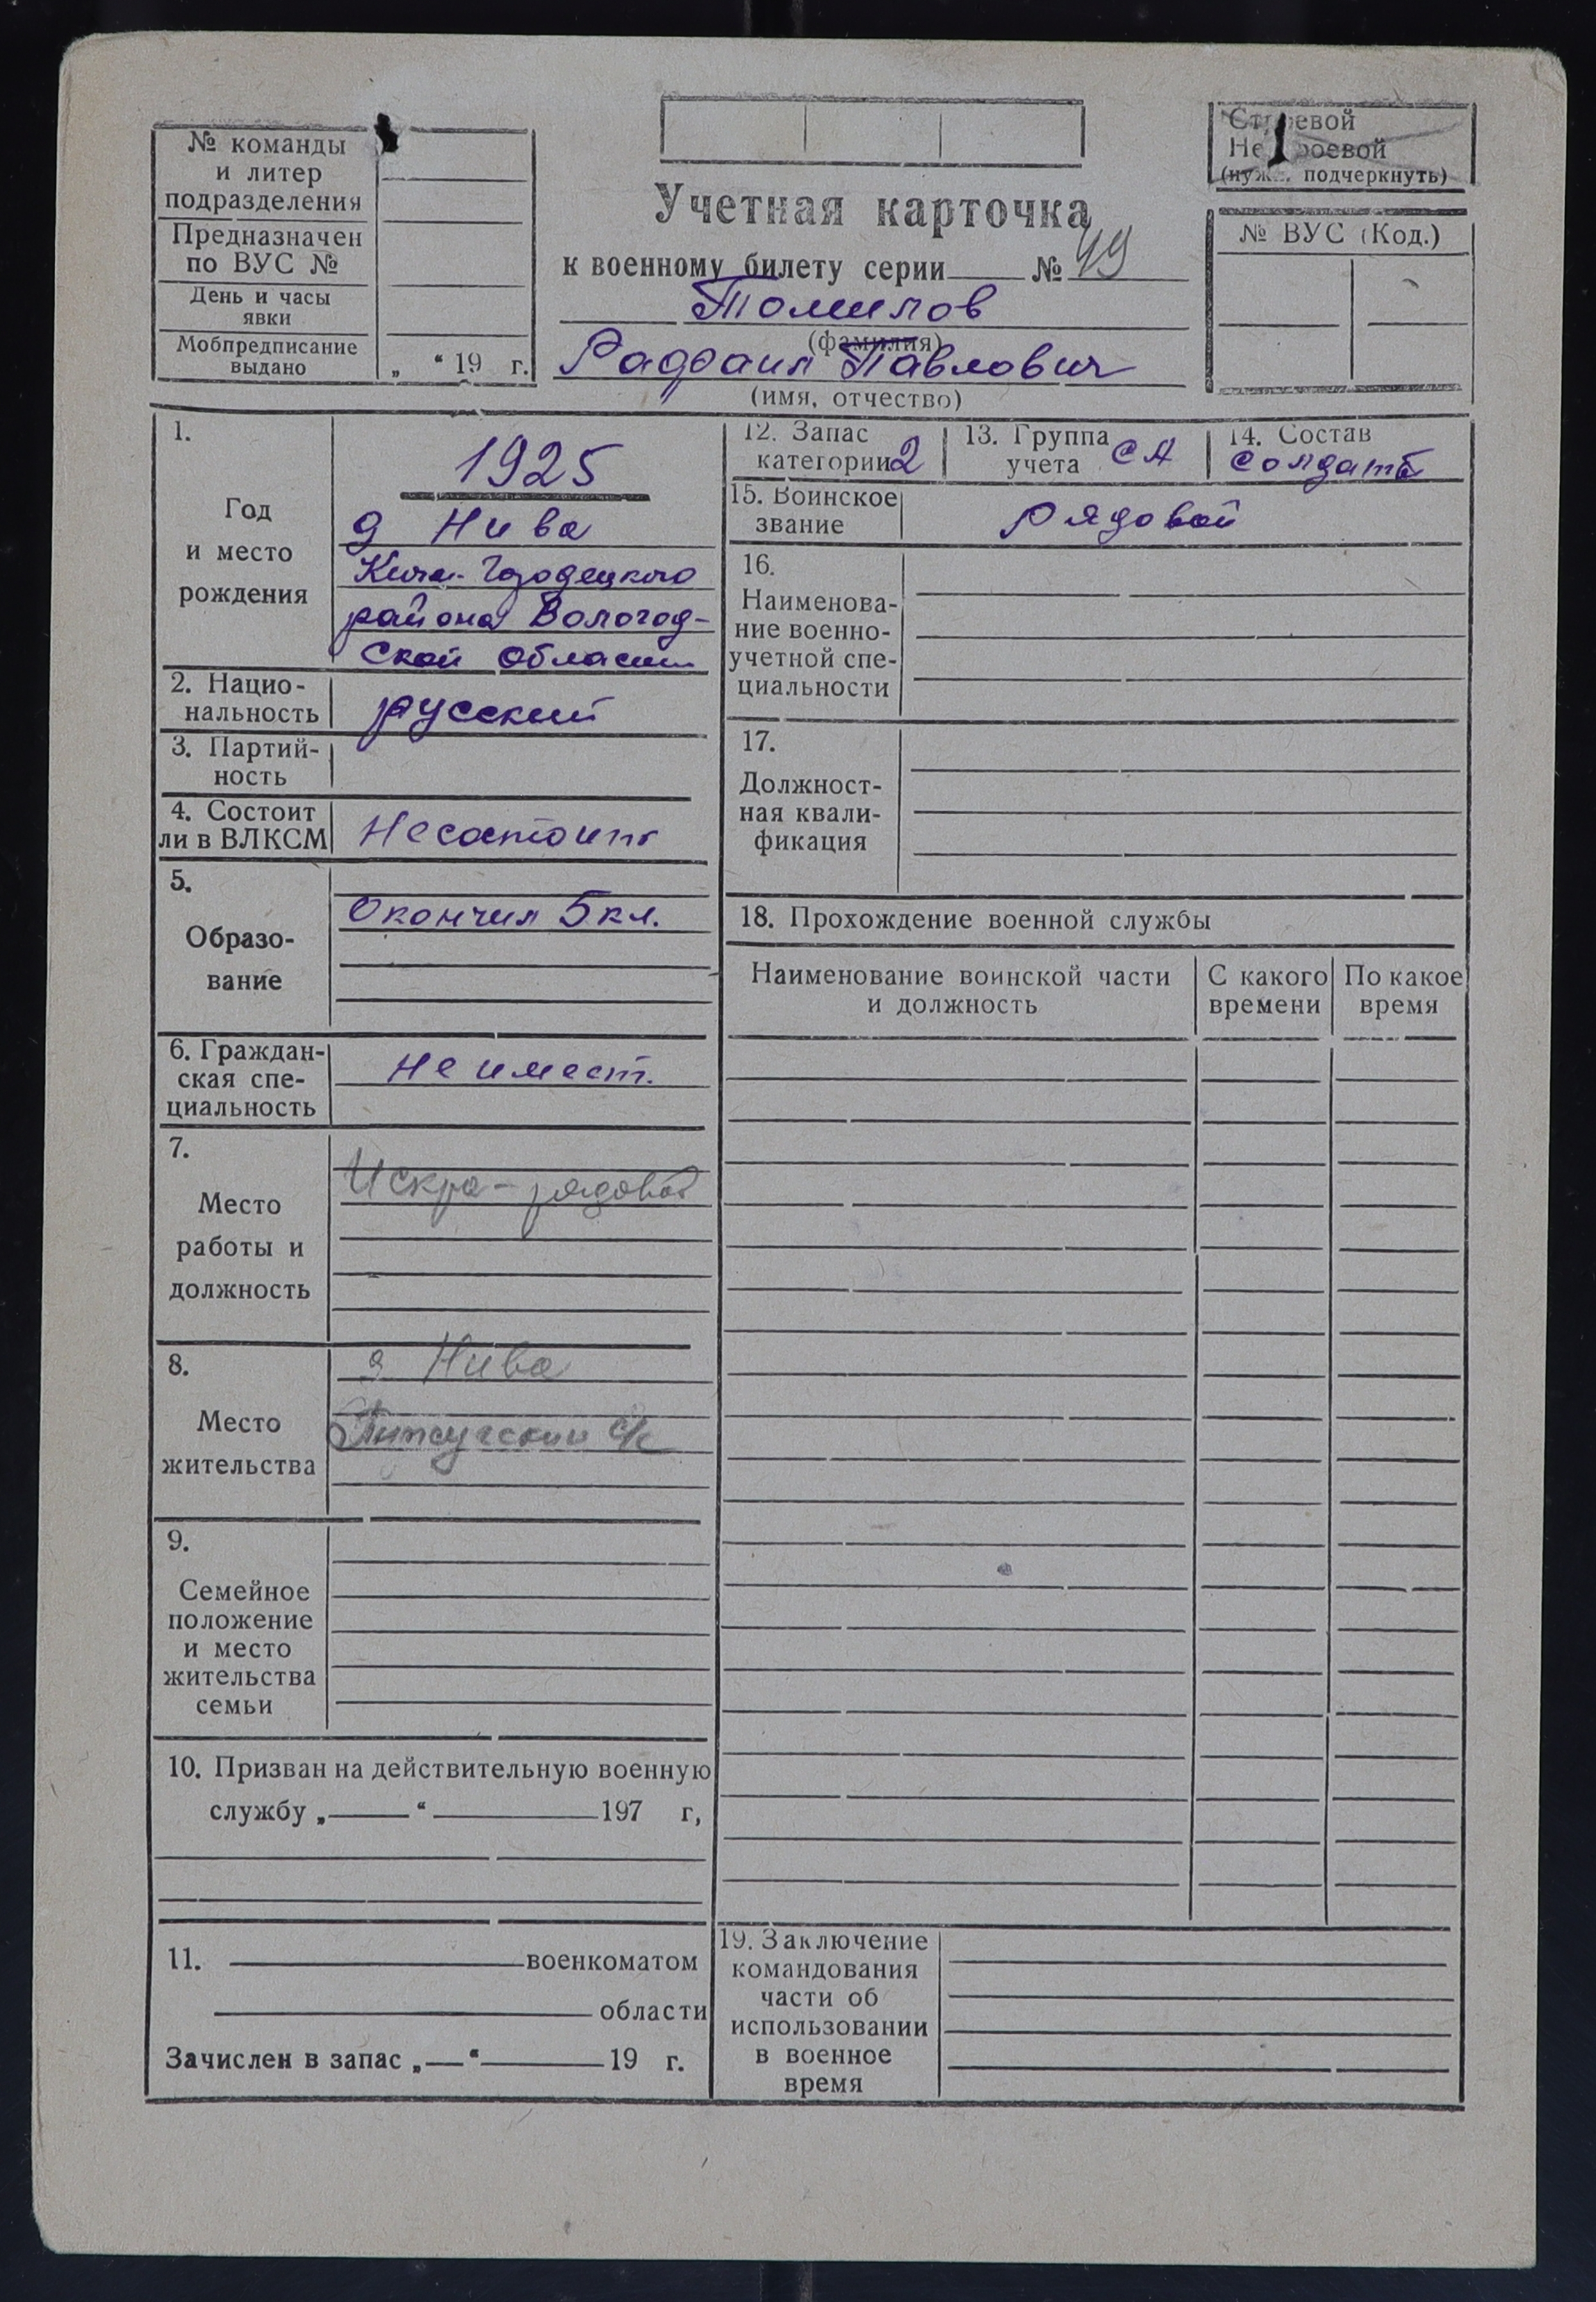 № команды
и литер
подразделения
Предназначен
по ВУС №
День и часы
явки
Мобпредписание
выдано
„ “ 19 г.
Учетная карточка
к военному билету серии № 49
Томилов
(фамилия)
Рафаил Павлович
(имя, отчество)
Строевой
Нестроевой
(нужн. подчеркнуть)
№ ВУС (Код.)
1.
Год
и место
рождения
1925
д Нива
Кич.-Городецкого
района Вологод-
ской области
2. Нацио-
нальность
русский
3. Партий-
ность
4. Состоит
ли в ВЛКСМ
Несостоит
5.
Образо-
вание
Окончил 5 кл.
6. Граждан-
ская спе-
циальность
не имеет.
7.
Место
работы и
должность
Искра - рядовой
8.
Место
жительства
д Нива
с/с
9.
Семейное
положение
и место
жительства
семьи
10. Призван на действительную военную
службу „ “ 197 г,
11. военкоматом
области
Зачислен в запас „ “ 19 г.
12. Запас
категории 2
13. Группа
учета СА
14. Состав
солдат
15. Воинское
звание
рядовой
16.
Наименова-
ние военно-
учетной спе-
циальности
17.
Должност-
ная квали-
фикация
18. Прохождение военной службы
Наименование воинской части
и должность
С какого
времени
По какое
время
19. Заключение
командования
части об
использовании
в военное
время